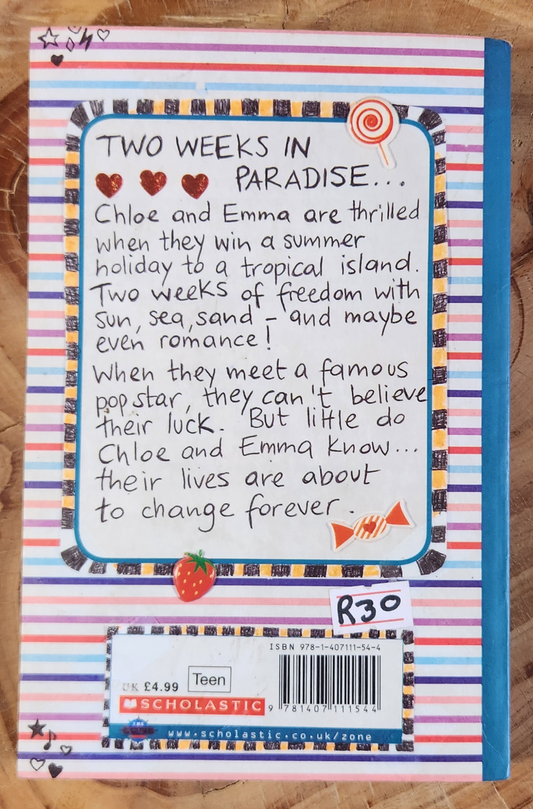 TWO WEEKS IN
PARADISE...
Chloe and Emma are thrilled
when they win a summer
holiday to a tropical island.
Two weeks of freedom with
sun, sea, sand - and maybe
even romance!
When they meet a famous
pop star, they can't believe
their luck. But little do
Chloe and Emma know...
their lives are about
to change forever.
R30
ISBN 978-1-407111-54-4
UK £4.99
Teen
SCHOLASTIC
9 781407 111544
www.scholastic.co.uk/zone